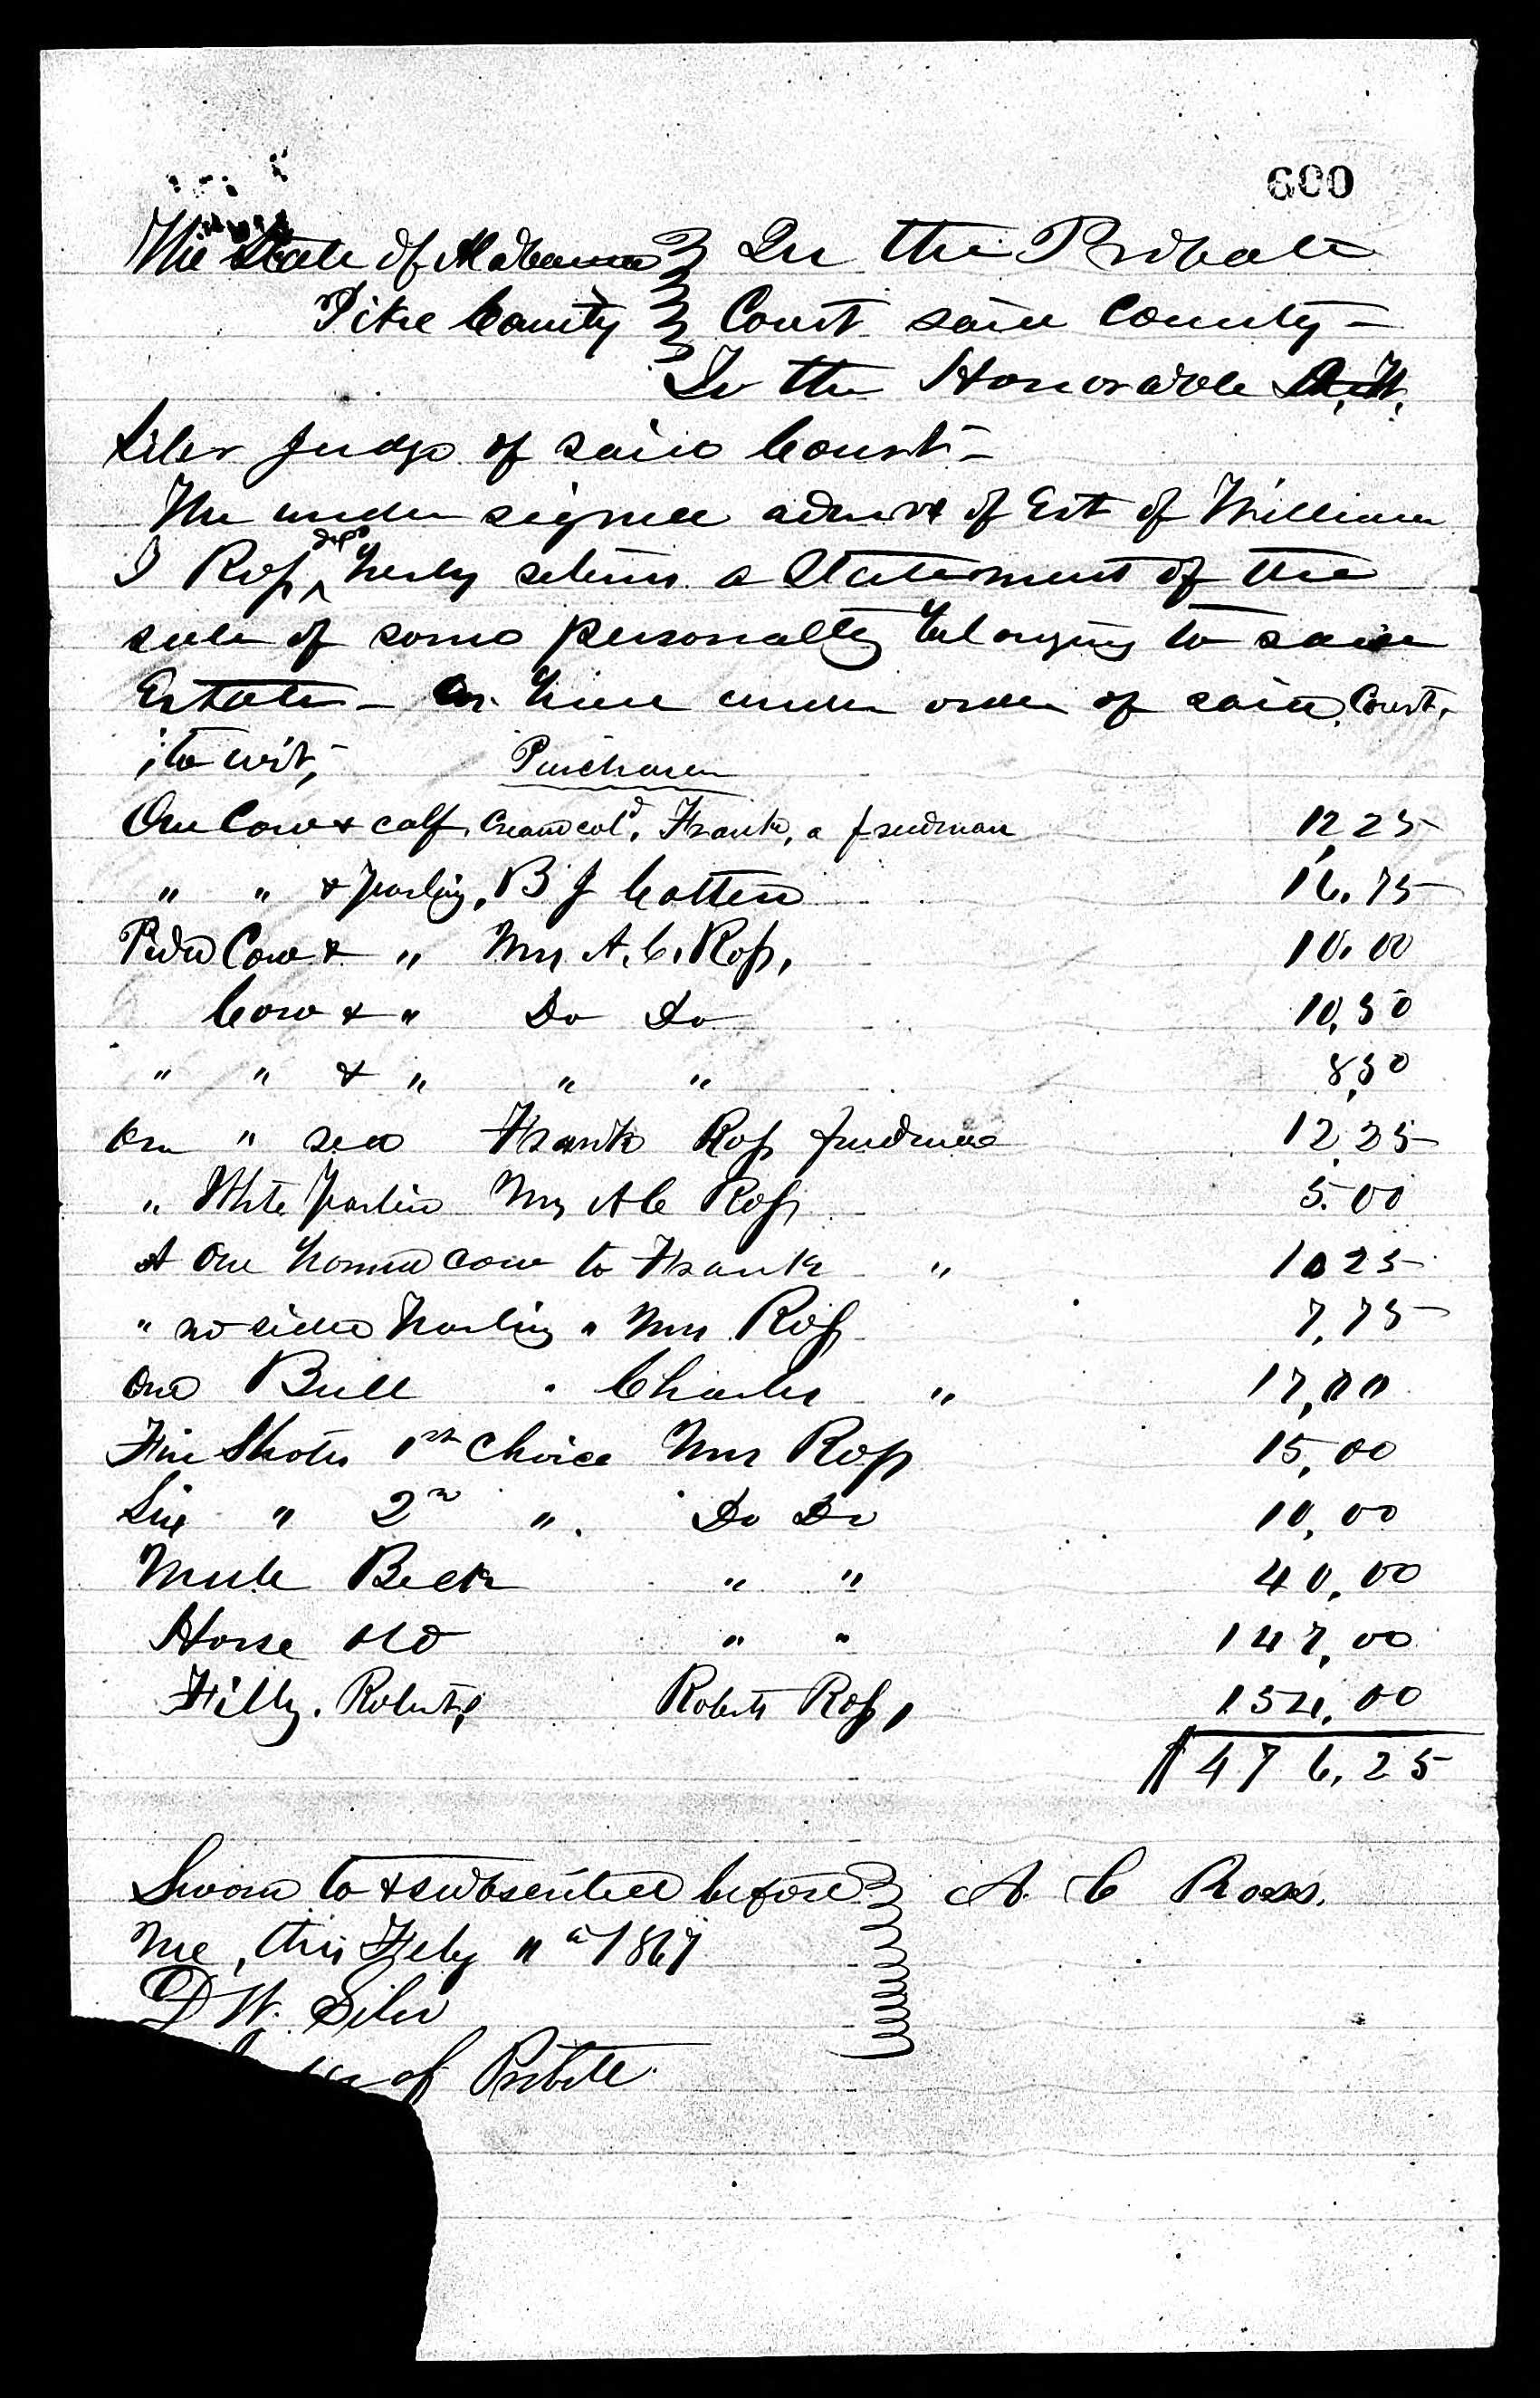 600
The State of Alabama In the Probate
Pike County Court said County -
To the Honorable
Siler Judge of said Court -
The undersigned admrx of Est of William
J Ross decd herby returns a Statement of the
sale of some personalty belonging to said
Estate - as have under order of said Court,
to wit, Purchaser
One Cow & calf, Cream cold. Frank, a freedman 12,25
" " & Yearling, B J Cotten 16.75
Pided Cow & " Mrs A. C. Ross, 10.00
Cow & " Do Do 10,50
" " & " " " 8,50
One " red Frank Ross freedman 12,25
" White Yearlin Mrs A C Ross 5.00
One horned cow to Frank " 1025
" no sided Yearling " Mrs Ross 7,75
One Bull " Charles " 17,00
Five Shotes 1st Choice Mrs Ross 15,00
Six " 2nd " Do Do 10,00
Mule Beck " " 40,00
Horse old " " 147,00
Filly. Robert, Robert Ross, 154,00
$476,25
Sworn to & subscribed before A. C Ross.
me, this Feby 1867
D W. Siler
of Probate